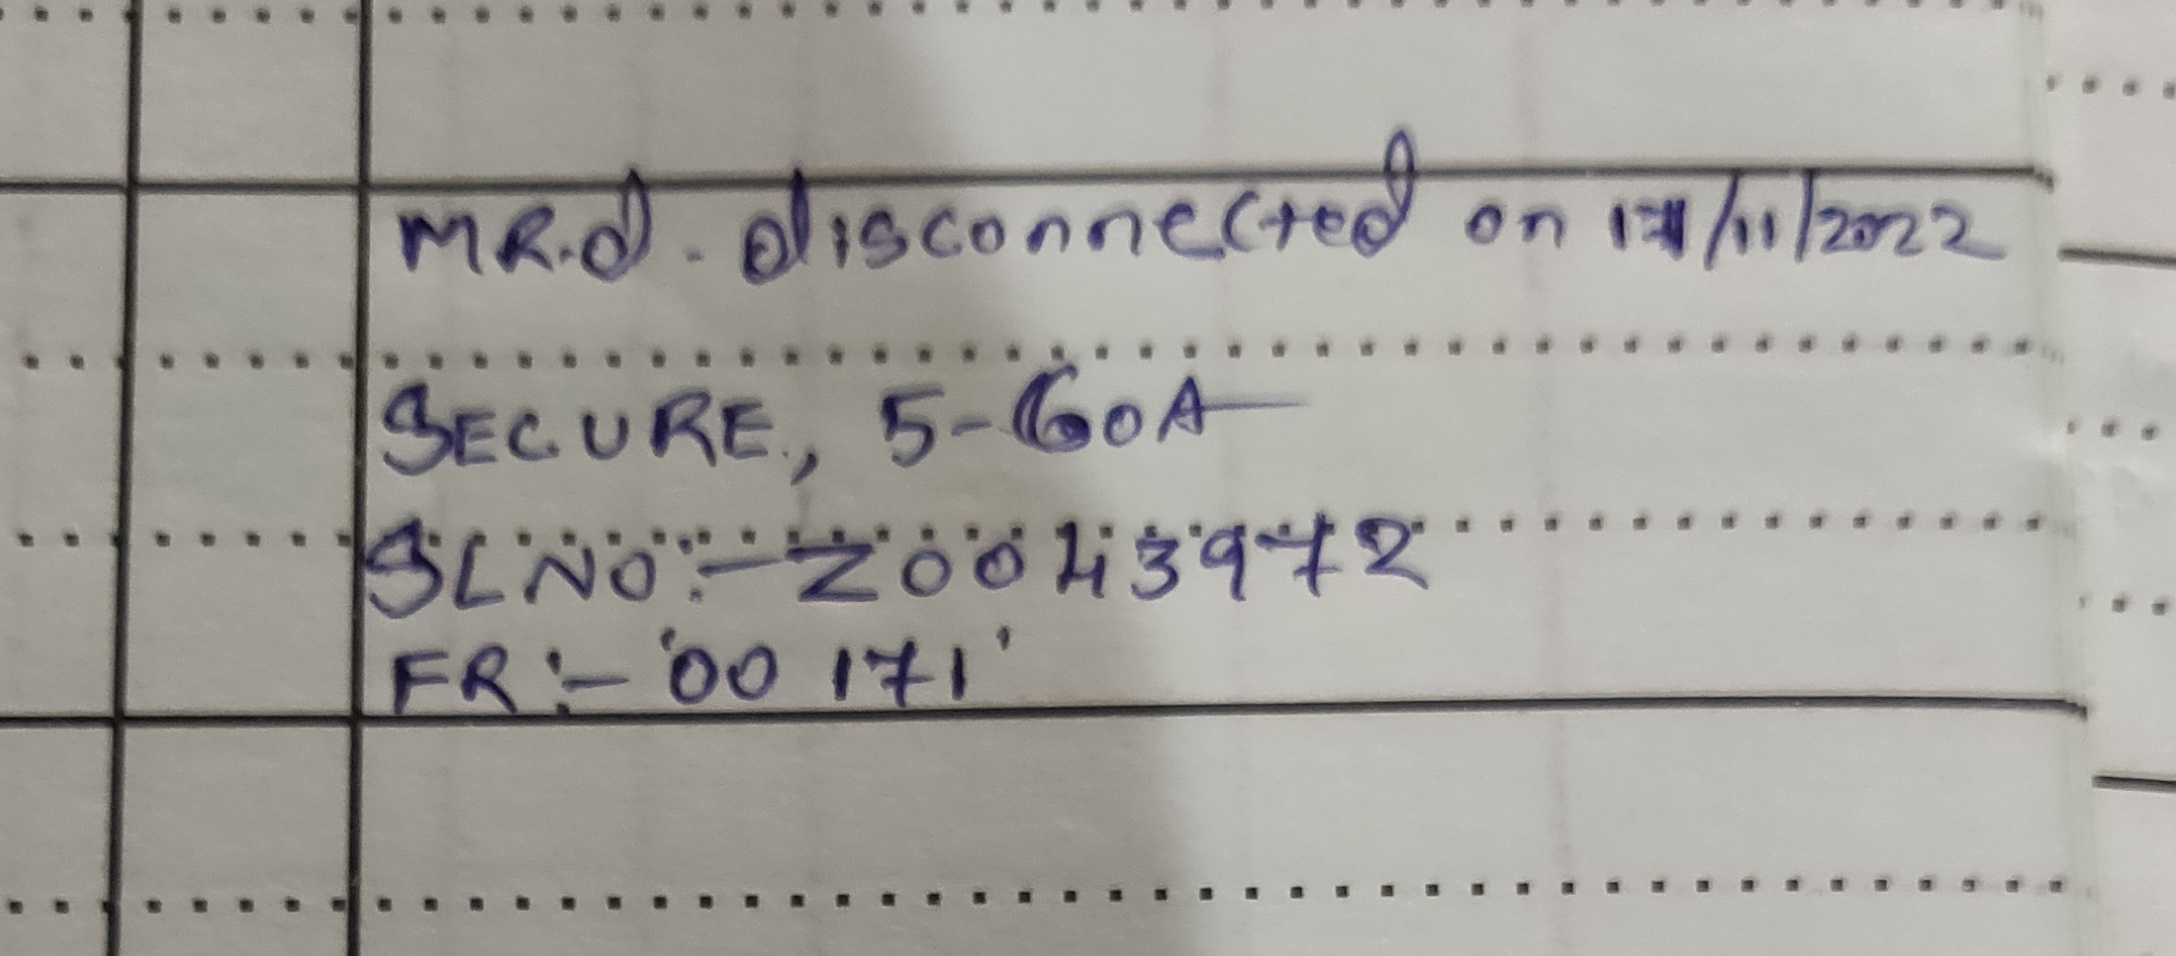 MR.d. disconnected on 17/11/2022
SECURE., 5-60A
SL NO:- Z0043972
FR:- '00171'